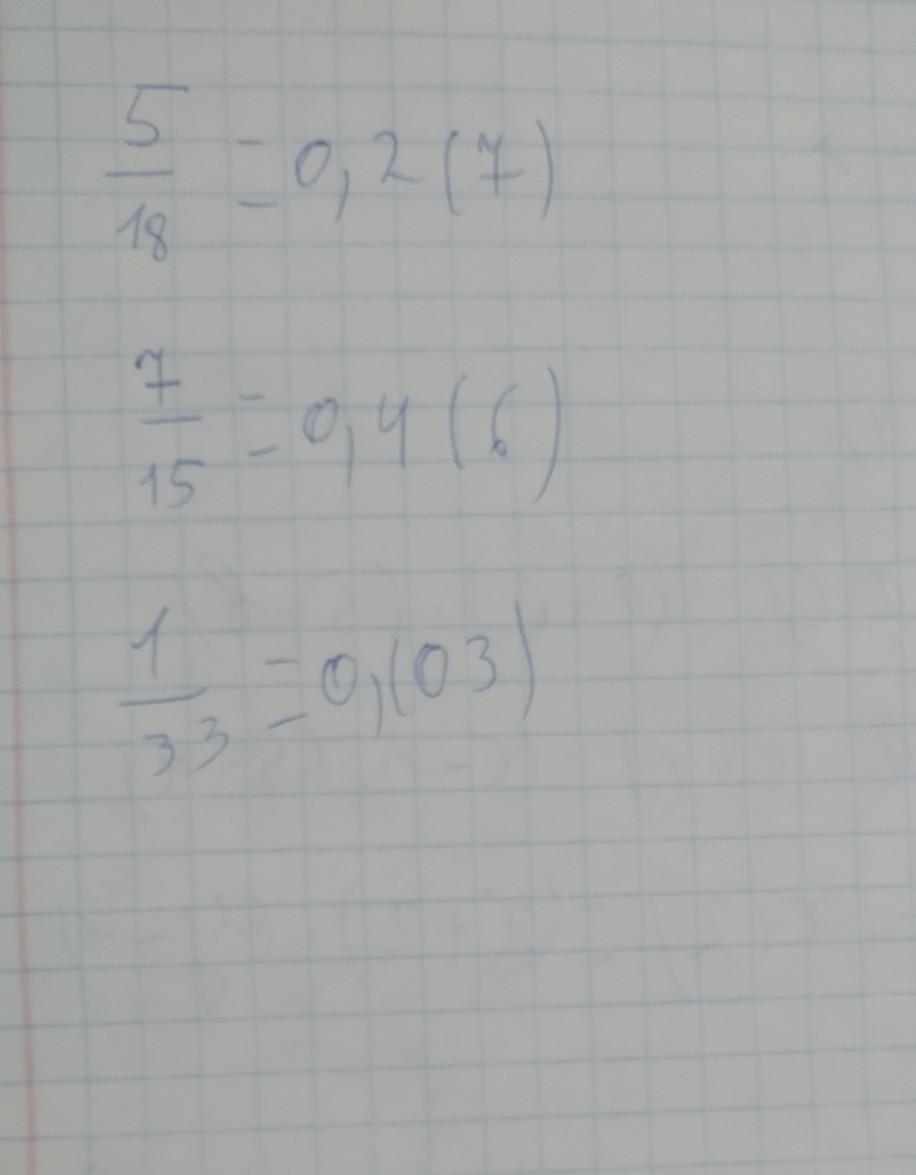 5/18 = 0,2(7)
7/15 = 0,4(6)
1/33 = 0,(03)